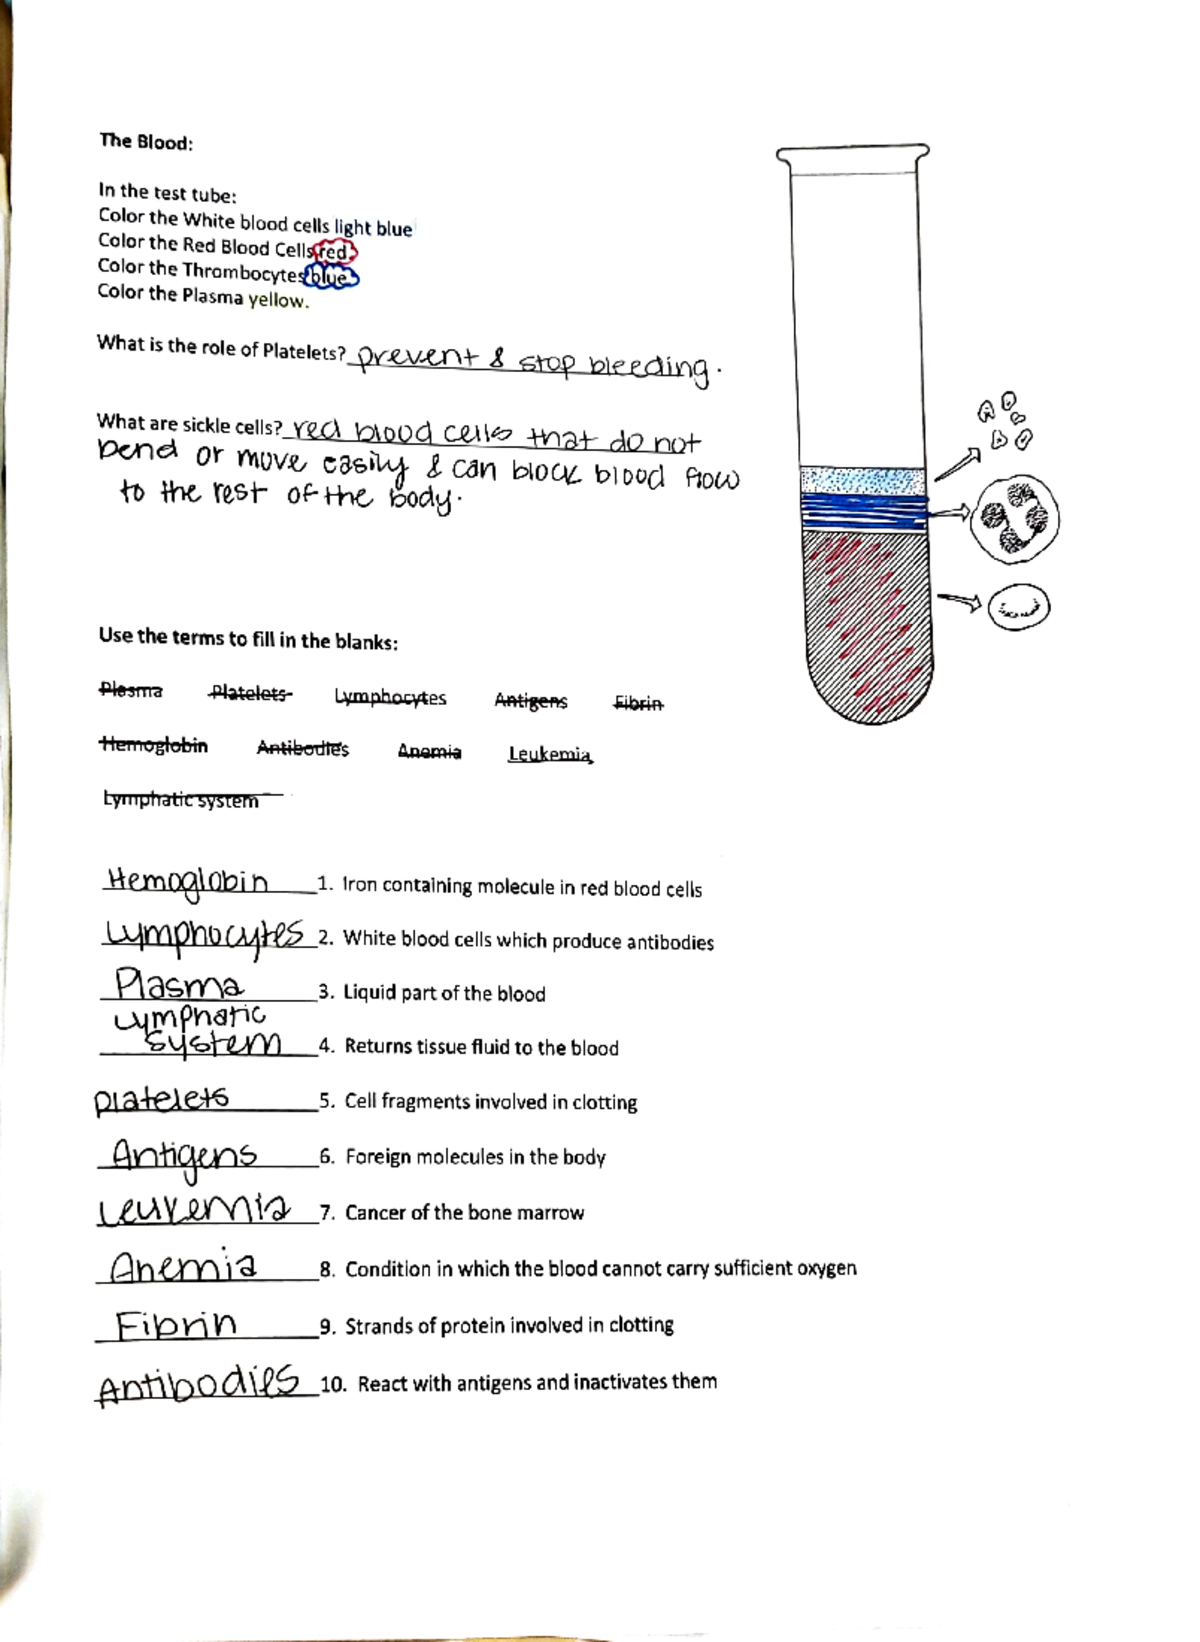 The Blood:
In the test tube:
Color the White blood cells light blue
Color the Red Blood Cells red.
Color the Thrombocytes blue.
Color the Plasma yellow.
What is the role of Platelets? prevent & stop bleeding.
What are sickle cells? red blood cells that do not
bend or move easily & can block blood flow
to the rest of the body.
Use the terms to fill in the blanks:
Plasma Platelets Lymphocytes Antigens Fibrin
Hemoglobin Antibodies Anemia Leukemia
Lymphatic system
Hemoglobin 1. Iron containing molecule in red blood cells
Lymphocytes 2. White blood cells which produce antibodies
Plasma 3. Liquid part of the blood
Lymphatic
system 4. Returns tissue fluid to the blood
platelets 5. Cell fragments involved in clotting
Antigens 6. Foreign molecules in the body
Leukemia 7. Cancer of the bone marrow
Anemia 8. Condition in which the blood cannot carry sufficient oxygen
Fibrin 9. Strands of protein involved in clotting
Antibodies 10. React with antigens and inactivates them